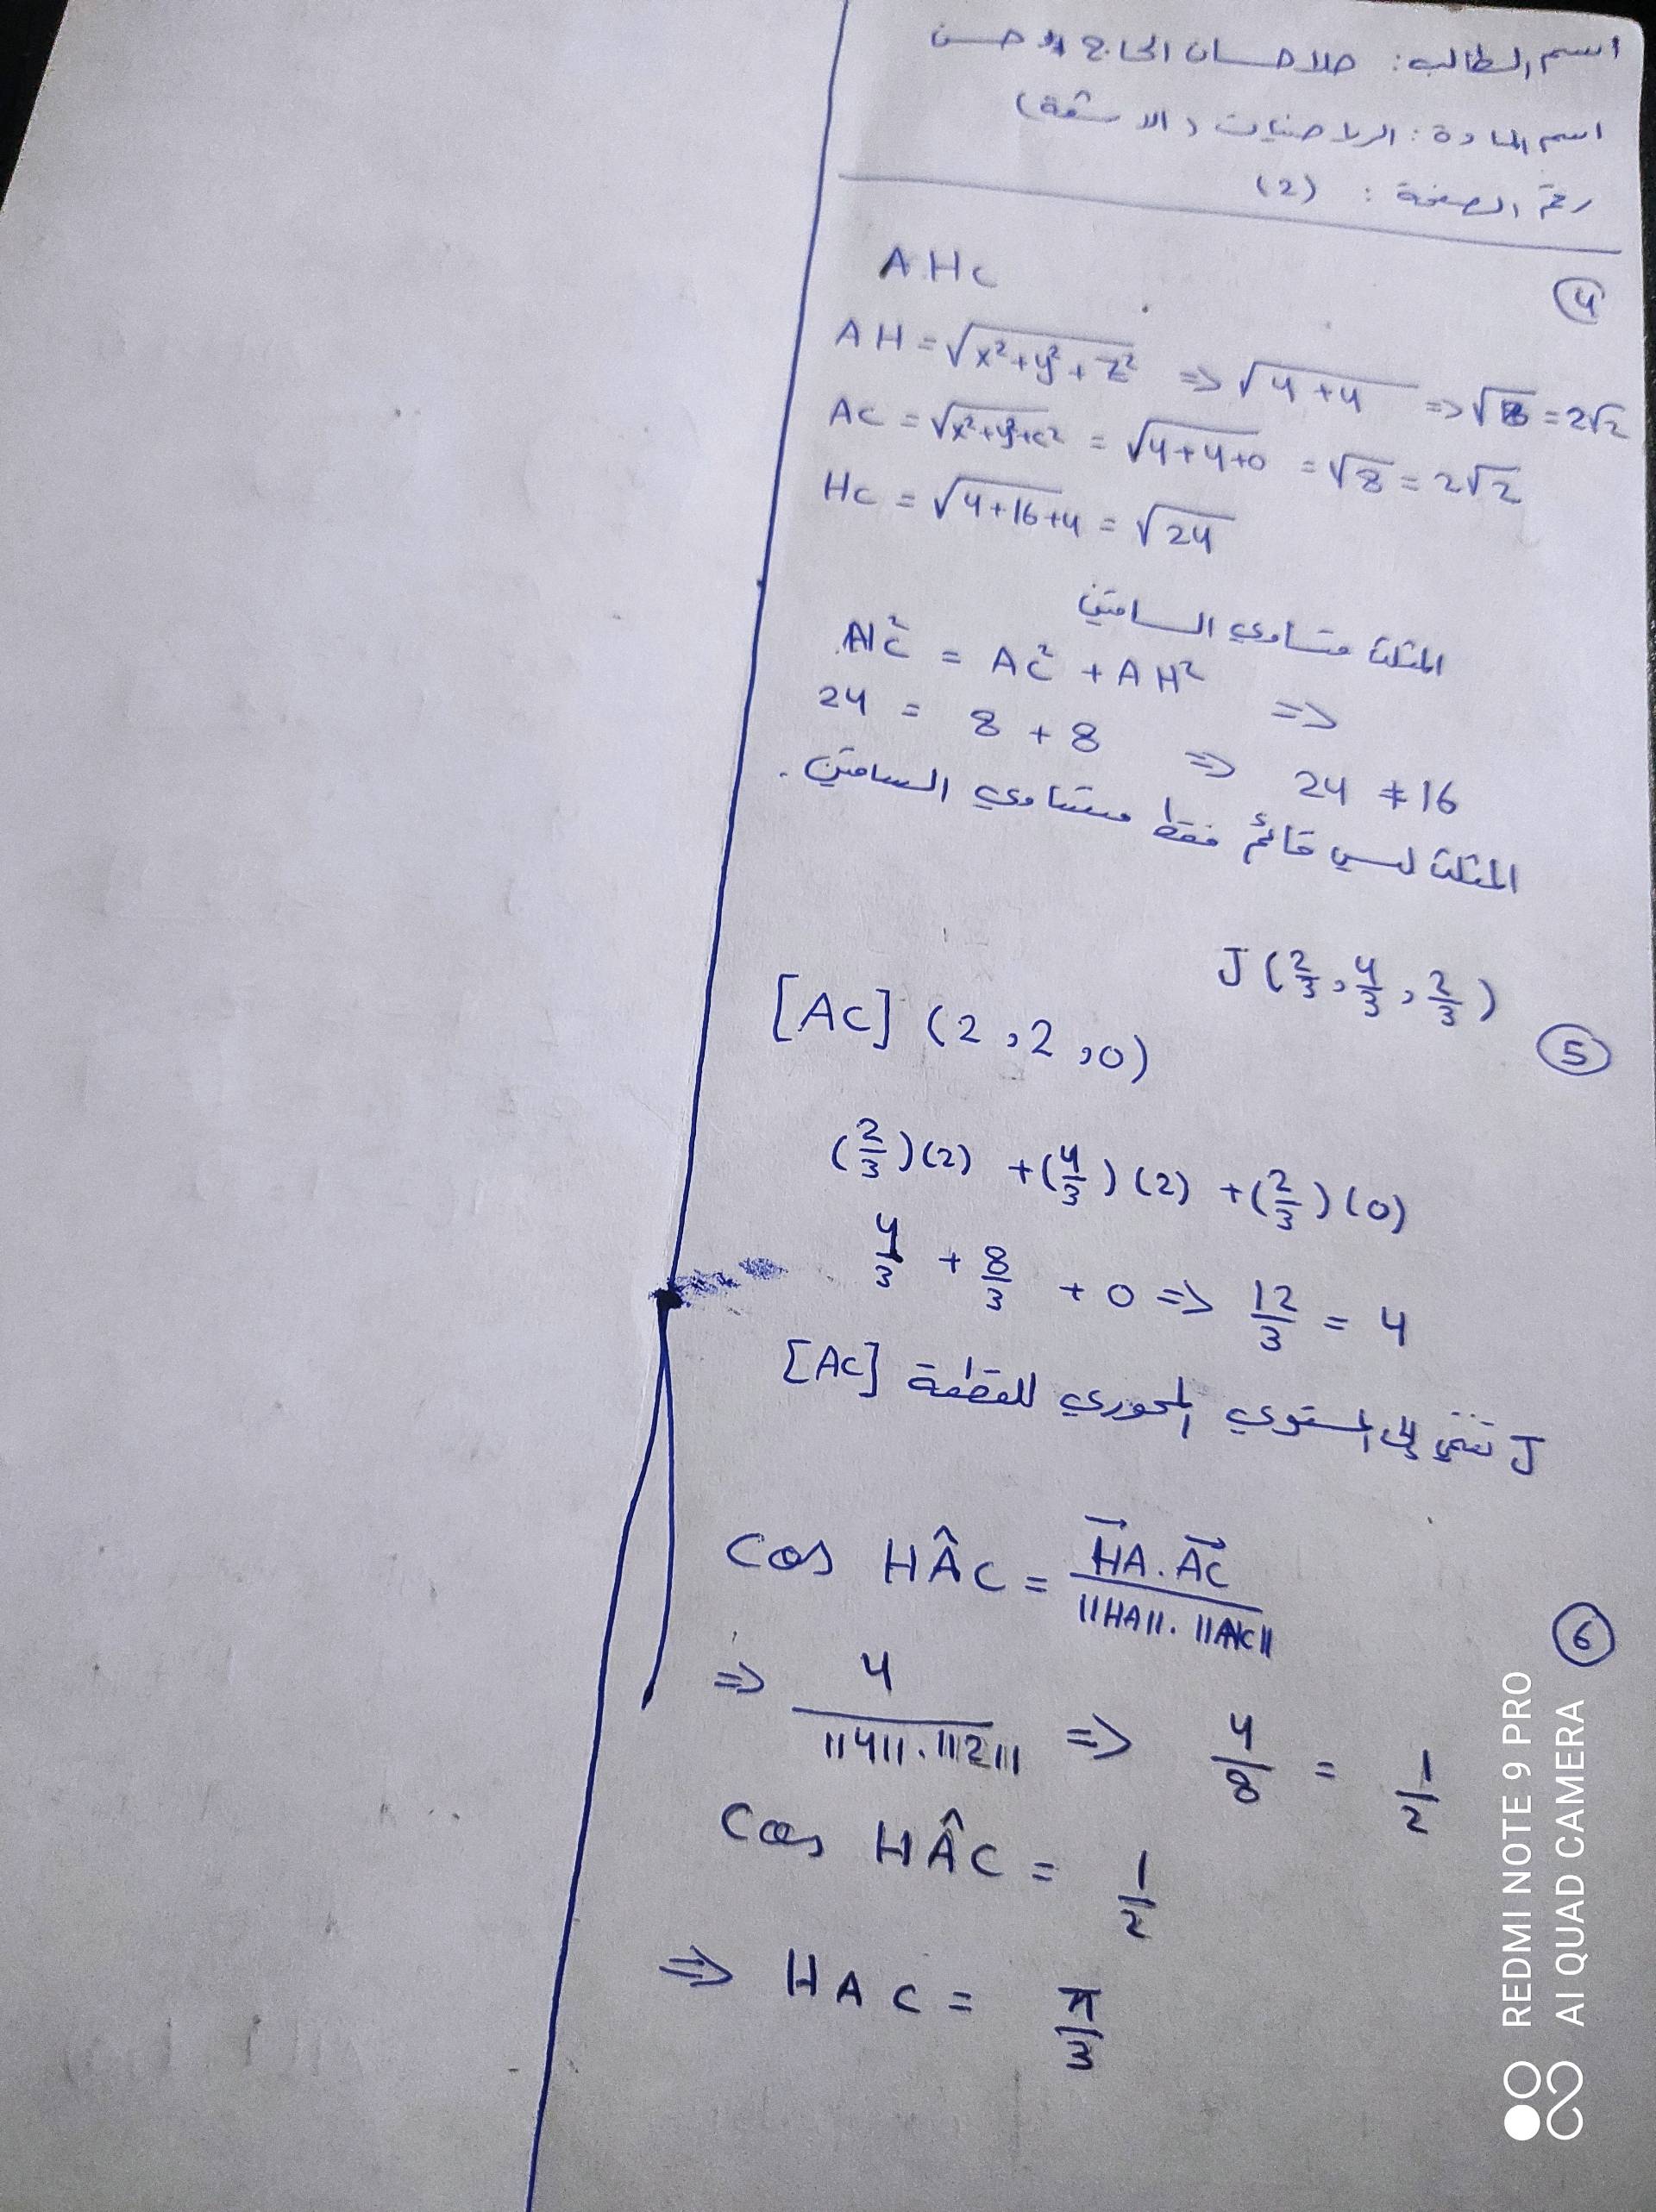 اسم الطالب: حلا حسان الحاج حسن
اسم المادة: الرياضيات (الاشعة)
رقم الصفحة: (2)
④
AHC
AH = √x²+y²+z² => √4+4 => √8 = 2√2
AC = √x²+y²+c² = √4+4+0 = √8 = 2√2
HC = √4+16+4 = √24
المثلث متساوي الساقين
HC² = AC² + AH² =>
24 = 8 + 8 => 24 ≠ 16
المثلث ليس قائم فقط متساوي الساقين.
⑤
J (2/3, 4/3, 2/3)
[AC] (2,2,0)
(2/3)(2) + (4/3)(2) + (2/3)(0)
4/3 + 8/3 + 0 => 12/3 = 4
J تنتمي إلى المستوي المحوري للقطعة [AC]
⑥
Cos HÂC = HA→.AC→ / ||HA||.||AC||
=> 4 / ||4||.||2|| => 4/8 = 1/2
Cos HÂC = 1/2
=> HAC = π/3
REDMI NOTE 9 PRO
AI QUAD CAMERA